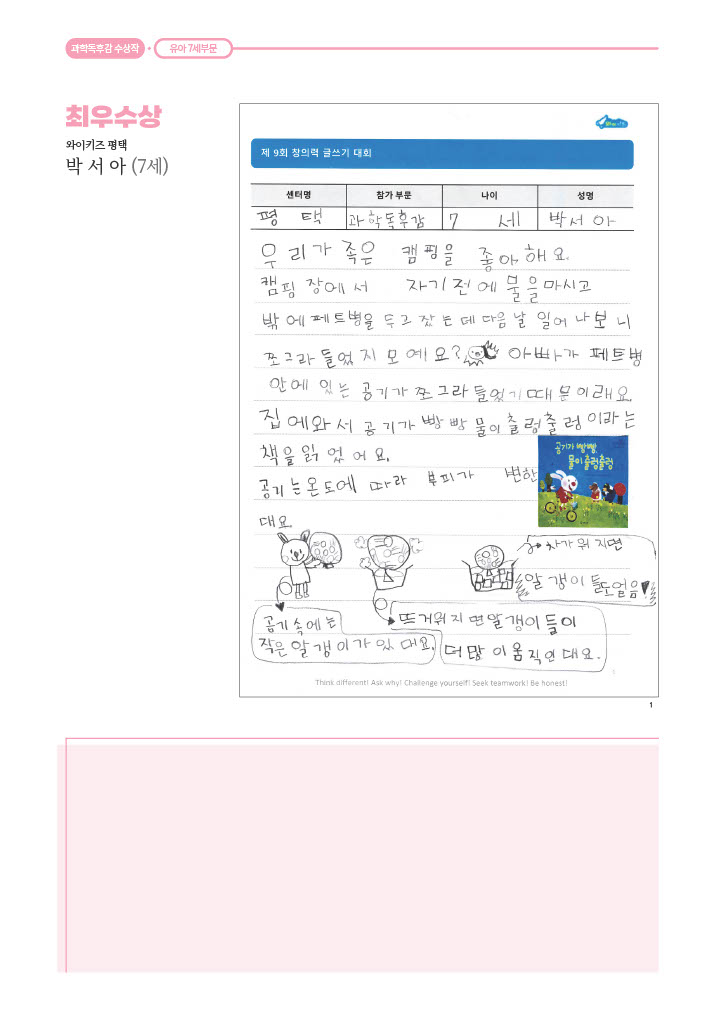 과학독후감 수상작
유아 7세부문
최우수상
와이키즈 평택
박 서 아 (7세)
제 9회 창의력 글쓰기 대회
센터명 참가 부문 나이 성명
평 택 과학독후감 7 세 박서아
우리가 족은 캠핑을 좋아해요.
캠핑 장에서 자기전에 물을마시고
밖에 페트병을 두고 잤는데 다음날 일어나보니
쪼그라들었지모예요? 아빠가 페트병
안에 있는 공기가 쪼그라들었기때문이래요.
집에와서 공기가 빵빵 물이 출렁출렁 이라는
책을읽었어요.
공기는온도에 따라 부피가 변한
대요.
공기가 빵빵,
물이 출렁출렁
차가워지면
알갱이들도얼음!
공기속에는
작은알갱이가있대요.
뜨거워지면알갱이들이
더많이움직인대요.
Think different! Ask why! Challenge yourself! Seek teamwork! Be honest!
1